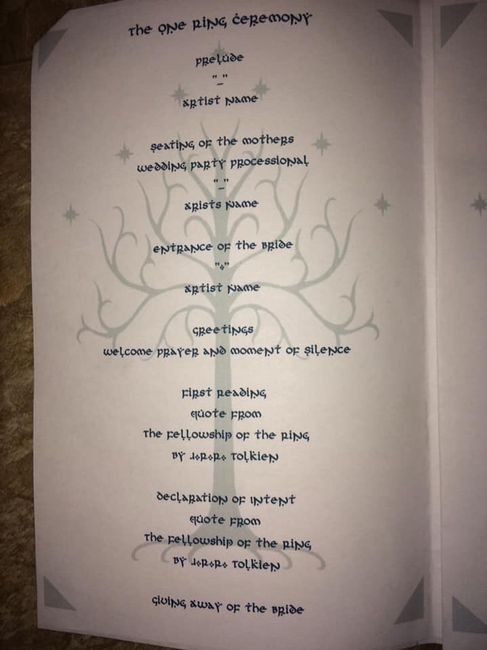 The One Ring Ceremony
Prelude
"_"
Artist Name
Seating of the Mothers
Wedding Party Processional
"_"
Arists Name
Entrance of the Bride
"*"
Artist Name
Greetings
Welcome Prayer and Moment of Silence
First Reading
Quote From
The Fellowship of the Ring
By J.R.R. Tolkien
Declaration of Intent
Quote From
The Fellowship of the Ring
By J.R.R. Tolkien
Giving Away of the Bride